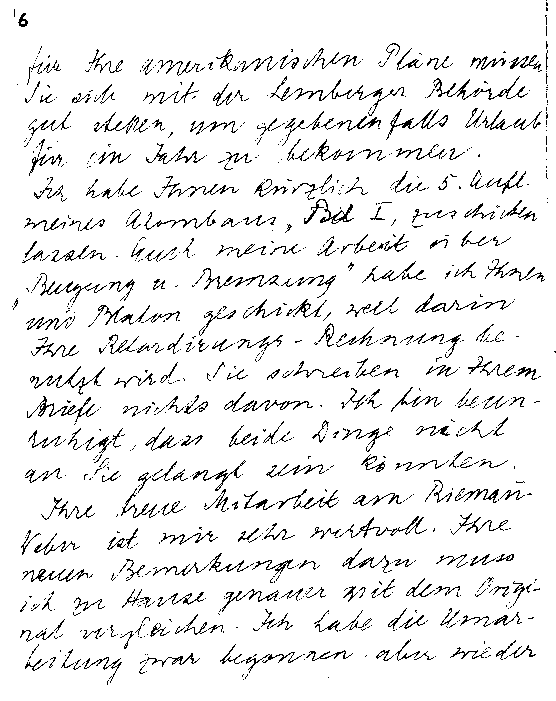 6
für Ihre amerikanischen Pläne müssen
Sie sich mit der Lemberger Behörde
gut stellen, um gegebenenfalls Urlaub
für ein Jahr zu bekommen.
Ich habe Ihnen kürzlich die 5. Aufl.
meines Atombaus, Bd I, zuschicken
lassen. Auch meine Arbeit über
„Beugung u. Bremsung" habe ich Ihnen
und Blaton geschickt, weil darin
Ihre Retardirungs-Rechnung be-
nutzt wird. Sie schreiben in Ihrem
Briefe nichts davon. Ich bin beun-
ruhigt, dass beide Dinge nicht
an Sie gelangt sein könnten.
Ihre treue Mitarbeit am Rieman̄-
Weber ist mir sehr wertvoll. Ihre
neuen Bemerkungen dazu muss
ich zu Hause genauer mit dem Origi-
nal vergleichen. Ich habe die Umar-
beitung zwar begonnen aber wieder